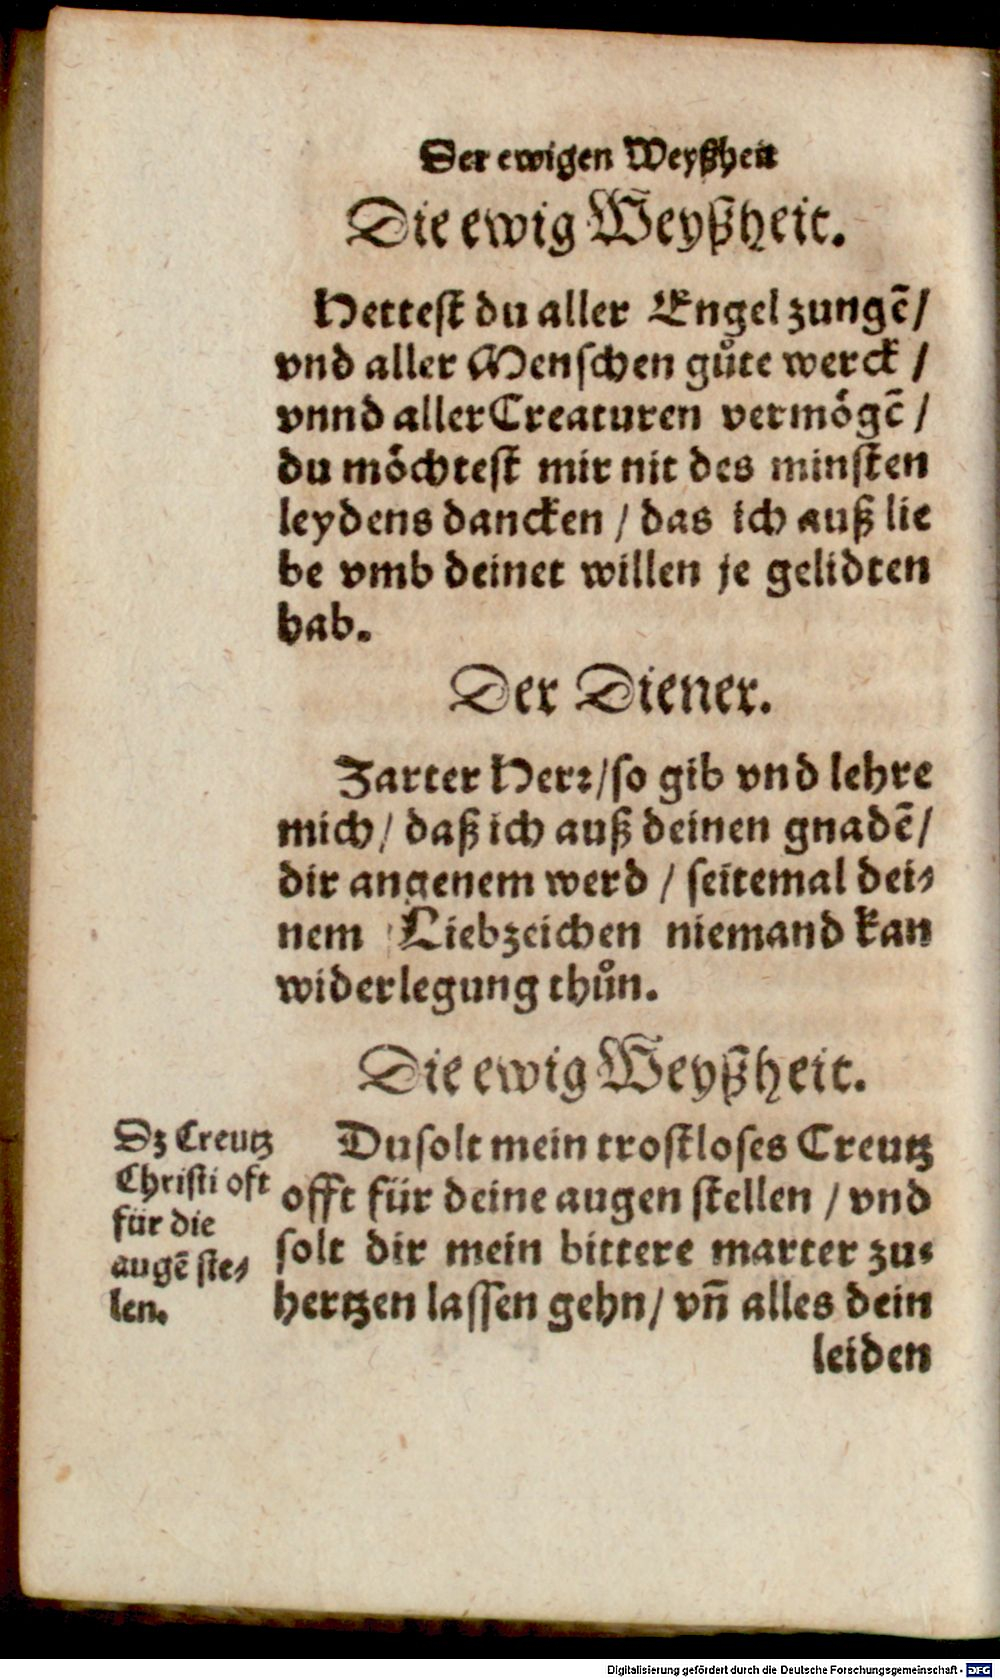 Der ewigen Weyßheit
Die ewig Weyßheit.
Hettest du aller Engel zungẽ/
vnd aller Menschen gůte werck /
vnnd aller Creaturen vermögẽ /
du möchtest mir nit des minsten
leydens dancken / das ich auß lie
be vmb deinet willen je gelidten
hab.
Der Diener.
Zarter Herr/so gib vnd lehre
mich/ daß ich auß deinen gnadẽ/
dir angenem werd / seitemal dei-
nem Liebzeichen niemand kan
widerlegung thůn.
Die ewig Weyßheit.
Dz Creutz
Christi oft
für die
augẽ ste-
len.
Du solt mein trostloses Creutz
offt für deine augen stellen / vnd
solt dir mein bittere marter zu-
hertzen lassen gehn/ vñ alles dein
leiden
Digitalisierung gefördert durch die Deutsche Forschungsgemeinschaft - DFG